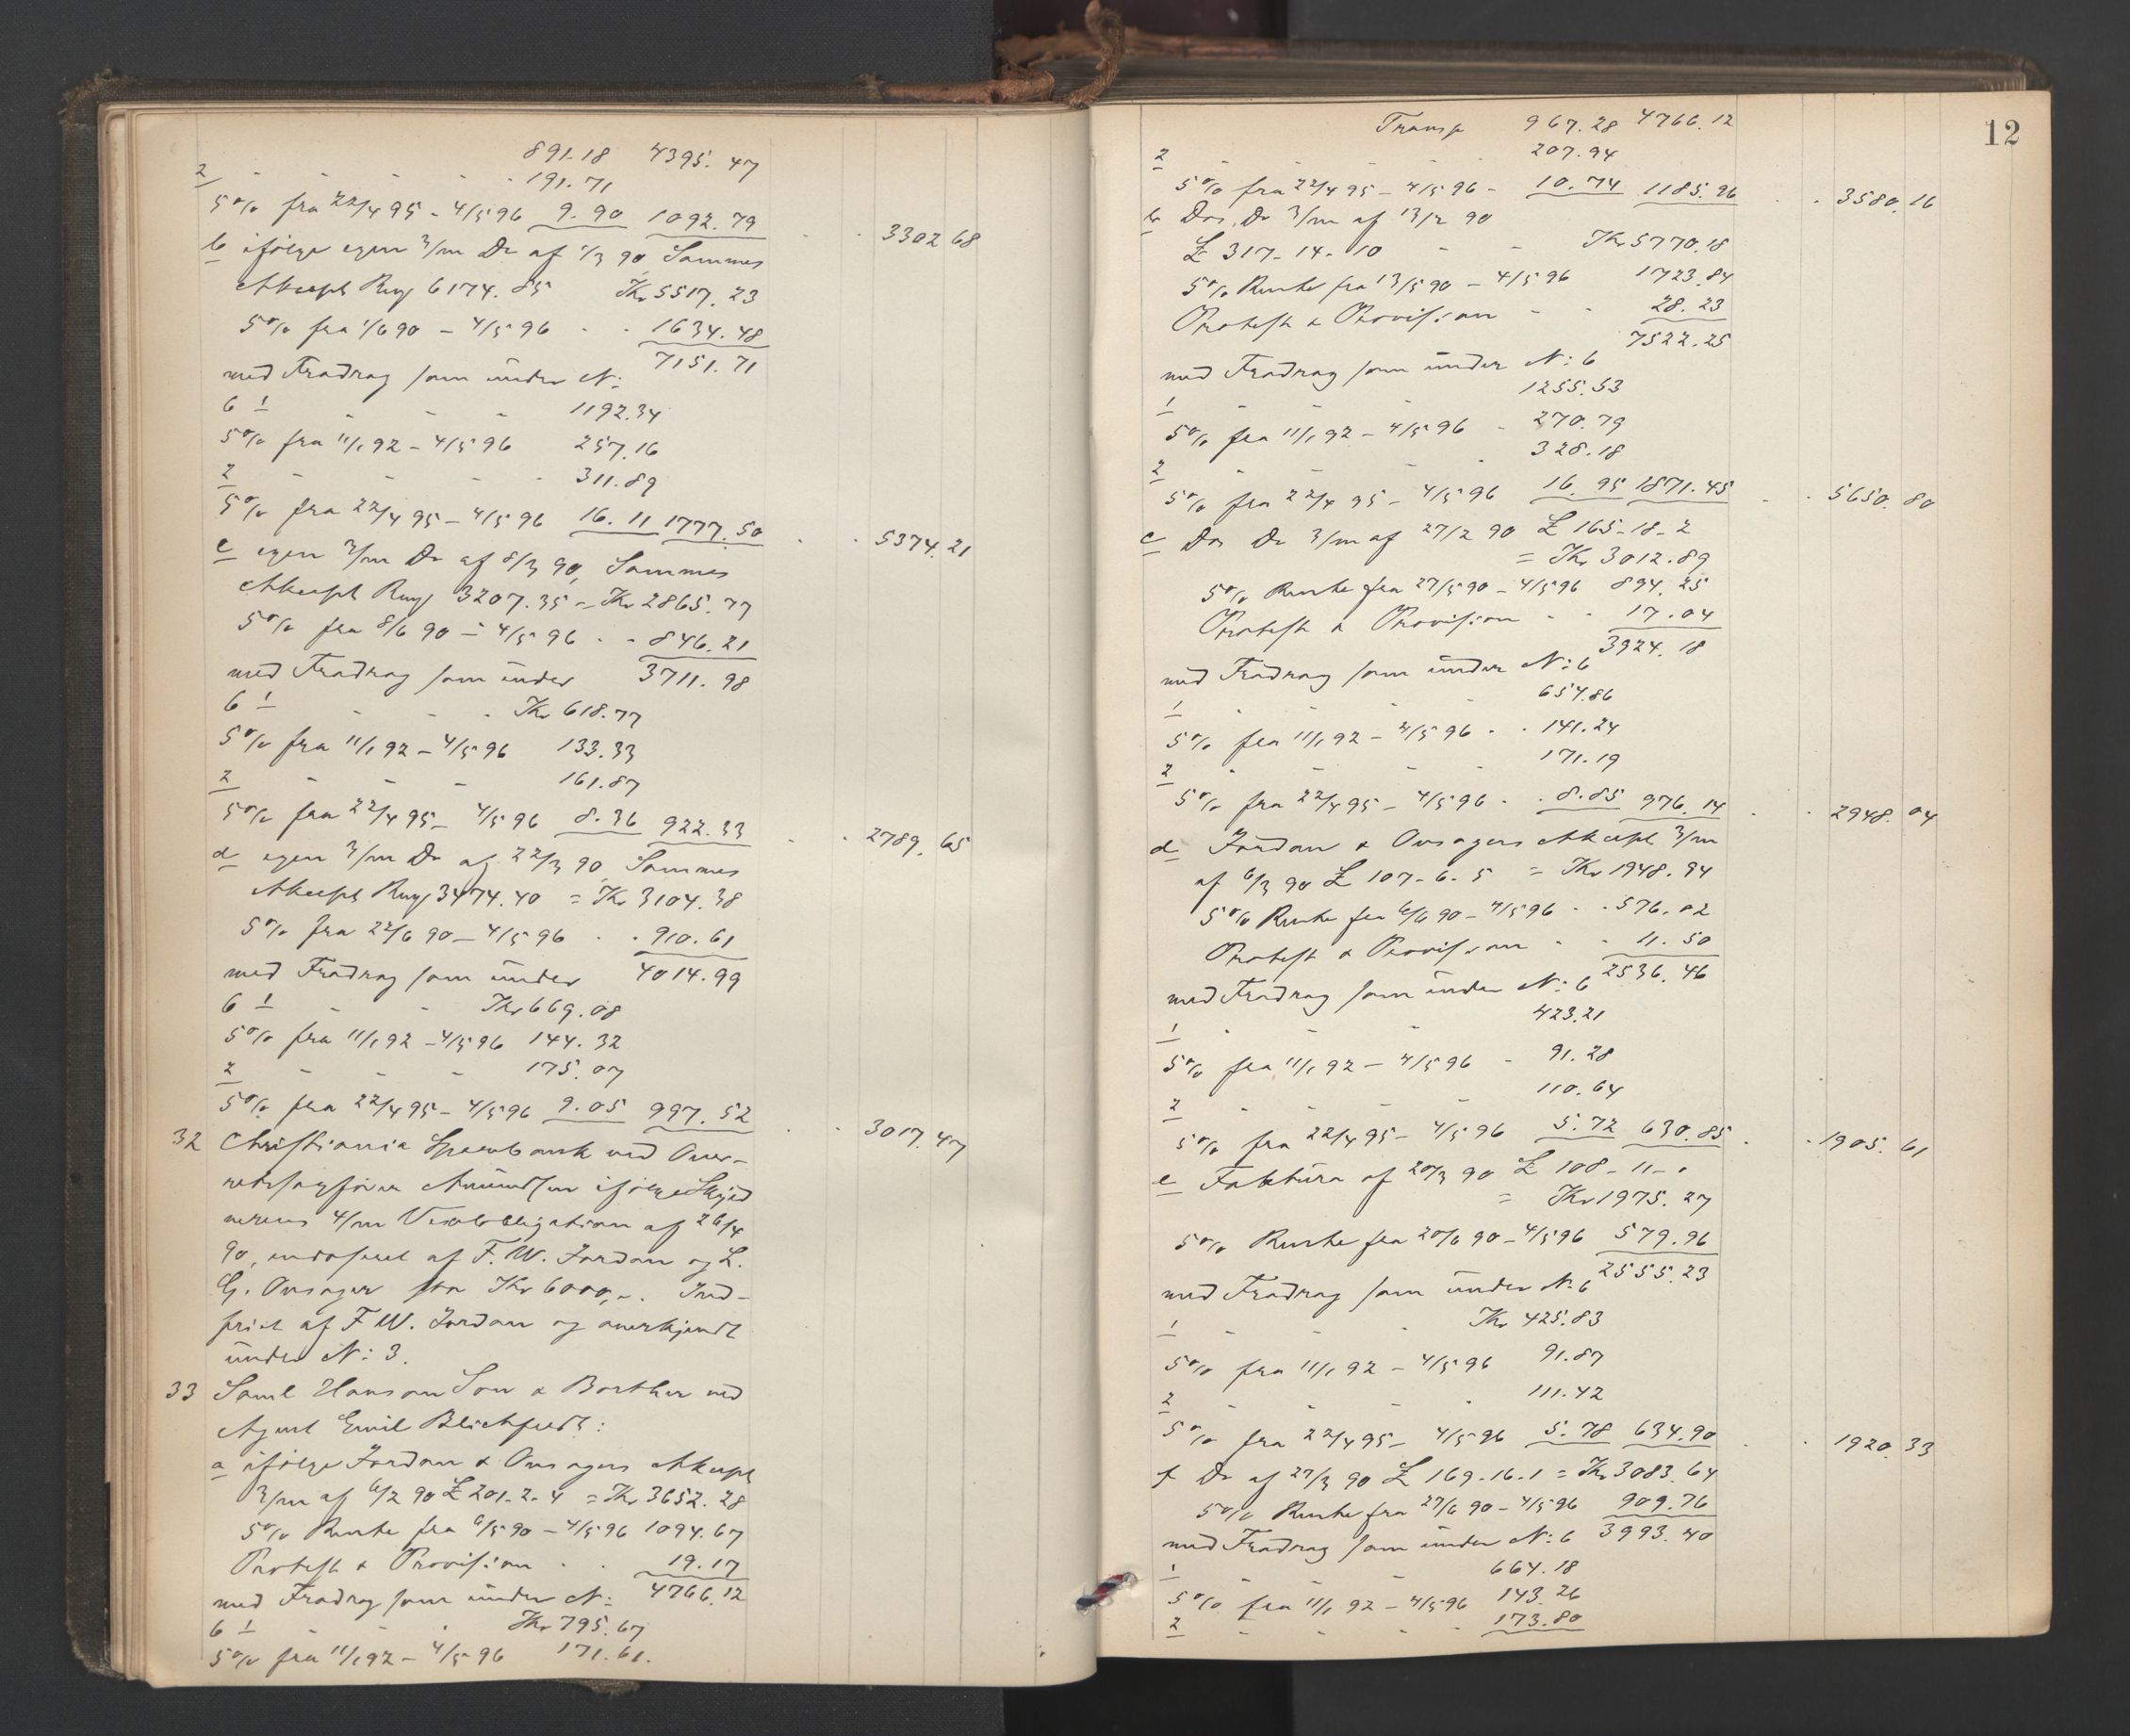 891.18 4395.47
2 - - - - - 191.71
5% fra 22/4 95 - 4/5 96 9.90 1092.79 - - 3302 68
b ifølge egen 3/m Dr af 1/3 90 Sammes
Akcept Rmf 6174.85 Kr 5517.23
5% fra 1/6 90 - 4/5 96 - - 1634.48
7151.71
med Fradrag som under N:
6 1 - - - 1192.34
5% fra 11/1 92 - 4/5 96 257.16
2 - - - - - 311.89
5% fra 22/4 95 - 4/5 96 16.11 1777.50 - - 5374.21
c egen 3/m Dr af 8/3 90, Sammes
Akcept Rmf 3207.35 = Kr 2865.77
5% fra 8/6 90 - 4/5 96 - - 846.21
med Fradrag som under 3711.98
6 1 - - - Kr 618.77
5% fra 11/1 92 - 4/5 96 133.33
2 - - - 161.87
5% fra 22/4 95 - 4/5 96 8.36 922.33 - - 2789.65
d egen 3/m Dr af 22/3 90, Sammes
Akcept Rmf 3474.40 = Kr 3104.38
5% fra 22/6 90 - 4/5 96 - - 910.61
med Fradrag som under 4014.99
6 1 - - Kr 669.08
5% fra 11/1 92 - 4/5 96 144.32
2 - - - 175.07
5% fra 22/4 95 - 4/5 96 9.05 997.52 - - 3017.47
32 Christiania Sparebank ved Over-
retssagfører Amundsen ifølge Skyld
nerens 4/m Vexelobligation af 26/4
90, endosseret af F. W. Jordan og L.
G. Onsager stor Kr 6000,-. Ind-
friet af F W. Jordan og anerkjendt
under N: 3.
33 Saml Hanson Son & Borther ved
Agent Emil Blichfeldt:
a ifølge Jordan & Onsagers Akcept
3/m af 6/2 90 £ 201-2-4 = Kr 3652.28
5% Rente fra 6/5 90 - 4/5 96 1094.67
Protest & Provission - - 19.17
med Fradrag som under N: 4766.12
6 1 - - - Kr 795.67
5% fra 11/1 92 - 4/5 96 171.61.
12
Transp 967.28 4766.12
2 - - - - - 207.94
5% fra 22/4 95 - 4/5 96 - 10.74 1185.96 - - 3580.16
b Dos. Dr 3/m af 13/2 90
£ 317-14-10 - - Kr 5770.18
5% Rente fra 13/5 90 - 4/5 96 1723.84
Protest & Provission - - 28.23
7522.25
med Fradrag som under N: 6
1 - - - 1255.53
5% fra 11/1 92 - 4/5 96 - 270.79
2 - - - - 328.18
5% fra 22/4 95 - 4/5 96 16.95 1871.45 - - 5650.80
c Dos Dr 3/m af 27/2 90 £ 165-18-2
= Kr 3012.89
5% Rente fra 27/5 90 - 4/5 96 894.25
Protest & Provission - - 17.04
3924.18
med Fradrag som under N: 6
1 - - - - 654.86
5% fra 11/1 92 - 4/5 96 - - 141.24
2 - - - - 171.19
5% fra 22/4 95 - 4/5 96 - - 8.85 976.14 - - 2948.04
d Jordan & Onsagers Akcept 3/m
af 6/3 90 £ 107-6-5 = Kr 1948.94
5% Rente fra 6/6 90 - 4/5 96 - - 576.02
Protest & Provission - - 11.50
2536.46
med Fradrag som under N: 6
1 - - - 423.21
5% fra 11/1 92 - 4/5 96 - 91.28
2 - - - - 110.64
5% fra 22/4 95 - 4/5 96 5.72 630.85 - - 1905.61
e Faktura af 20/3 90 £ 108-11-0
= Kr 1975.27
5% Rente fra 20/6 90 - 4/5 96 579.96
2555.23
med Fradrag som under N: 6
1 - - - Kr 425.83
5% fra 11/1 92 - 4/5 96 91.87
2 - - - - 111.42
5% fra 22/4 95 - 4/5 96 5.78 634.90 - - 1920.33
f Dr af 27/3 90 £ 169.16.1 = Kr 3083.64
5% Rente fra 27/6 90 - 4/5 96 909.76
med Fradrag som under N: 6 3993.40
1 - - - - 664.18
5% fra 11/1 92 - 4/5 96 143.26
2 - - - - 173.80